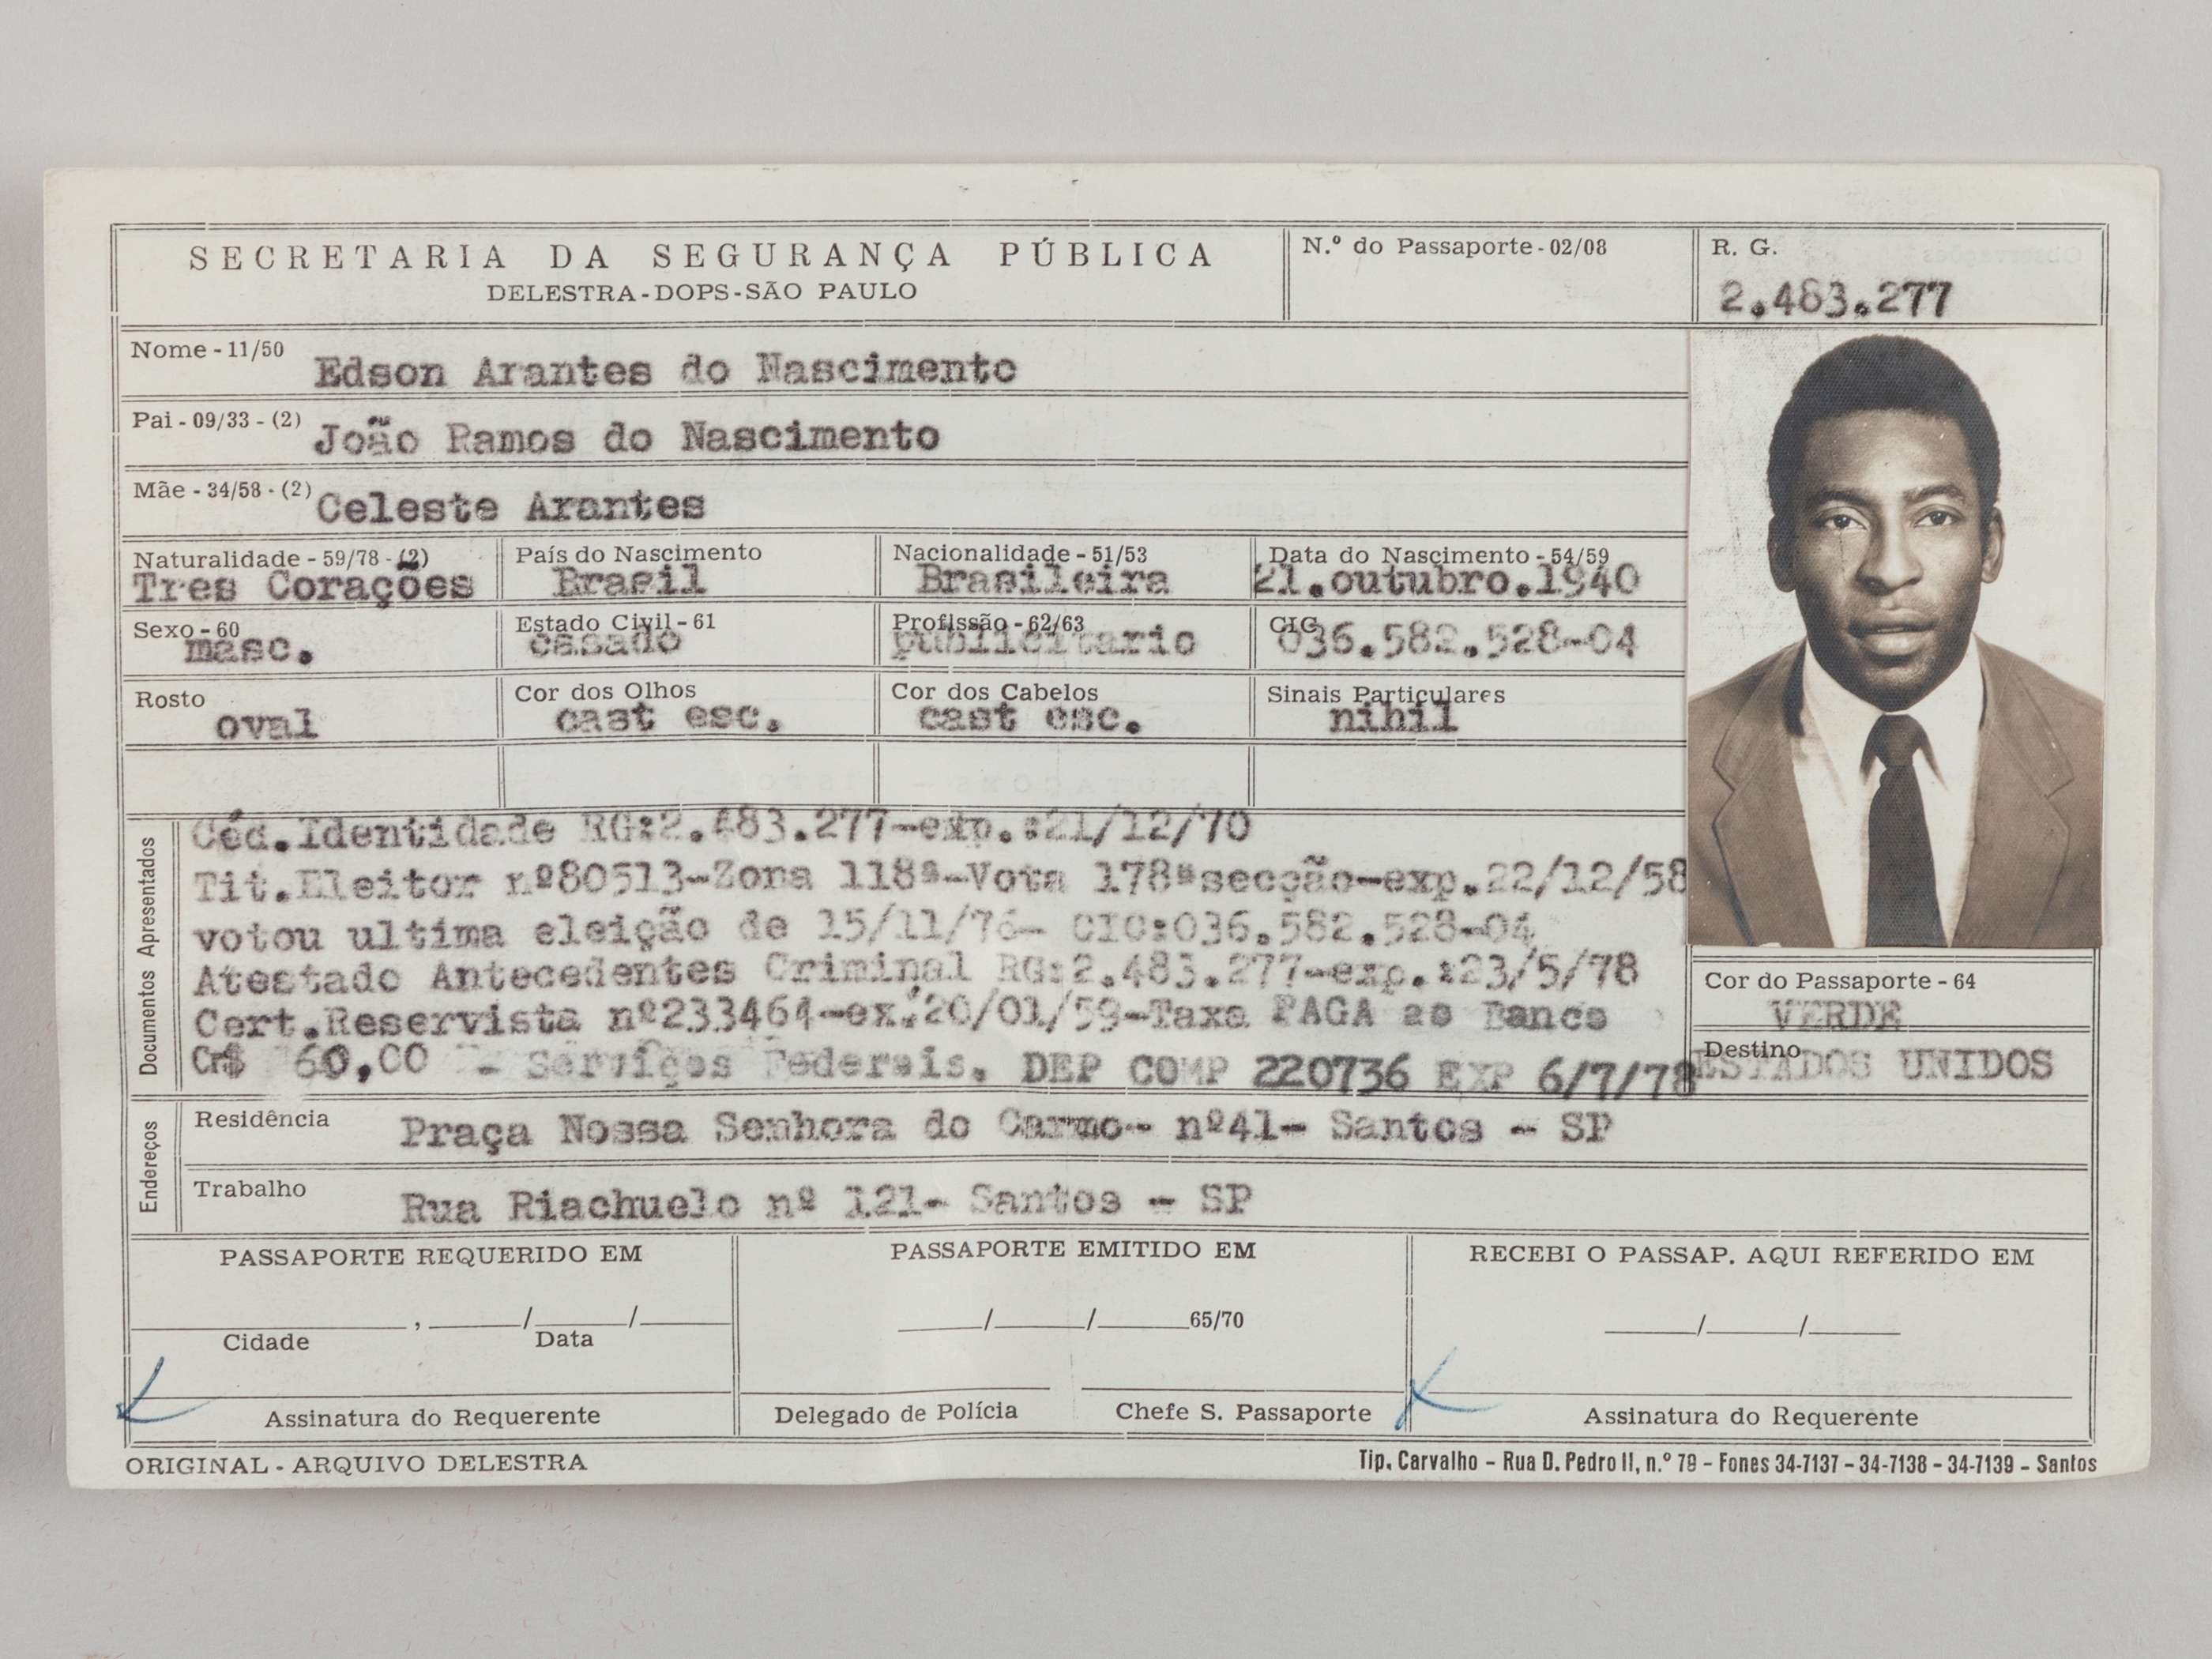 SECRETARIA DA SEGURANÇA PÚBLICA
DELESTRA-DOPS-SÃO PAULO
N.º do Passaporte - 02/08
R. G.
2.483.277
Nome - 11/50 Edson Arantes do Nascimento
Pai - 09/33 - (2) João Ramos do Nascimento
Mãe - 34/58 - (2) Celeste Arantes
Naturalidade - 59/78 - (2) País do Nascimento Nacionalidade - 51/53 Data do Nascimento - 54/59
Tres Corações Brasil Brasileira 21.outubro.1940
Sexo - 60 Estado Civil - 61 Profissão - 62/63 CIC
masc. casado publicitario 036.582.528-04
Rosto Cor dos Olhos Cor dos Cabelos Sinais Particulares
oval cast esc. cast esc. nihil
Documentos Apresentados
Céd.Identidade RG:2.483.277-exp.:21/12/70
Tit.Eleitor nº80513-Zona 118ª-Vota 178ªsecção-exp.22/12/58
votou ultima eleição de 15/11/76- CIC:036.582.528-04
Atestado Antecedentes Criminal RG:2.483.277-exp.:23/5/78
Cert.Reservista nº233464-ex.20/01/59-Taxa PAGA ao Banco
Cr$ 60,00 - Serviços Federais. DEP COMP 220736 EXP 6/7/78
Cor do Passaporte - 64
VERDE
Destino
ESTADOS UNIDOS
Endereços
Residência Praça Nossa Senhora do Carmo- nº41- Santos - SP
Trabalho Rua Riachuelo nº 121- Santos - SP
PASSAPORTE REQUERIDO EM PASSAPORTE EMITIDO EM RECEBI O PASSAP. AQUI REFERIDO EM
______,____/____/____ ____/____/____65/70 ____/____/____
Cidade Data
Assinatura do Requerente Delegado de Polícia Chefe S. Passaporte Assinatura do Requerente
ORIGINAL - ARQUIVO DELESTRA
Tip. Carvalho - Rua D. Pedro II, n.º 79 - Fones 34-7137 - 34-7138 - 34-7139 - Santos